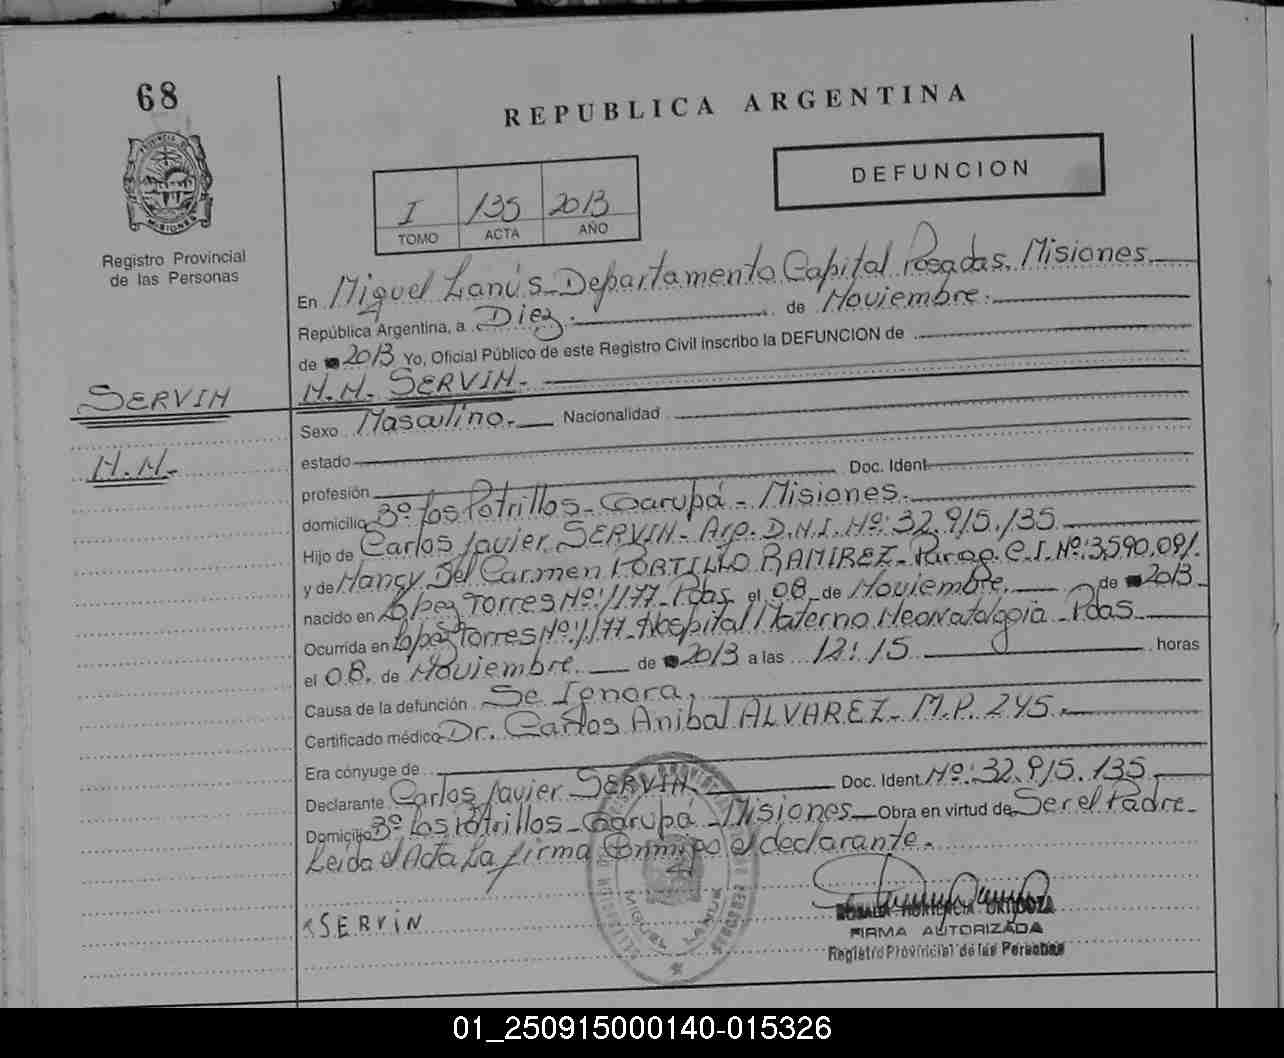 68
REPUBLICA ARGENTINA
PROVINCIA DE
MISIONES
DEFUNCION
I 135 2013
TOMO ACTA AÑO
Registro Provincial
de las Personas
En Miguel Lanús - Departamento Capital Posadas, Misiones.
República Argentina, a Diez. de Noviembre.
de 2013 Yo, Oficial Público de este Registro Civil inscribo la DEFUNCION de
SERVIN
N.N. SERVIN.
Sexo Masculino. Nacionalidad
N.N.
estado
profesión Doc. Ident
domicilio Bº Los Potrillos - Garupá - Misiones.
Hijo de Carlos Javier SERVIN - Arg. D.N.I. Nº: 32.915.135
y de Nancy Del Carmen PORTILLO RAMIREZ - Parag. C.I. Nº: 3,590.091
nacido en López Torres Nº: 1177 - Pdas el 08 de Noviembre. de 2013
Ocurrida en López Torres Nº: 1177 - Hospital Materno Neonatología - Pdas
el 08. de Noviembre. de 2013 a las 12:15 horas
Causa de la defunción Se Ignora.
Certificado médico Dr. Carlos Anibal ALVAREZ - M.P. 245.
Era cónyuge de
Declarante Carlos Javier SERVIN Doc. Ident. Nº: 32.915.135.
Domicilio Bº Los Potrillos - Garupá - Misiones Obra en virtud de Ser el Padre -
Leída el Acta La firma Conmigo el declarante.
SERVIN
MIGUEL LANUS
ROSALIA HORTENCIA ORTIGOZA
FIRMA AUTORIZADA
Registro Provincial de las Personas
01_250915000140-015326